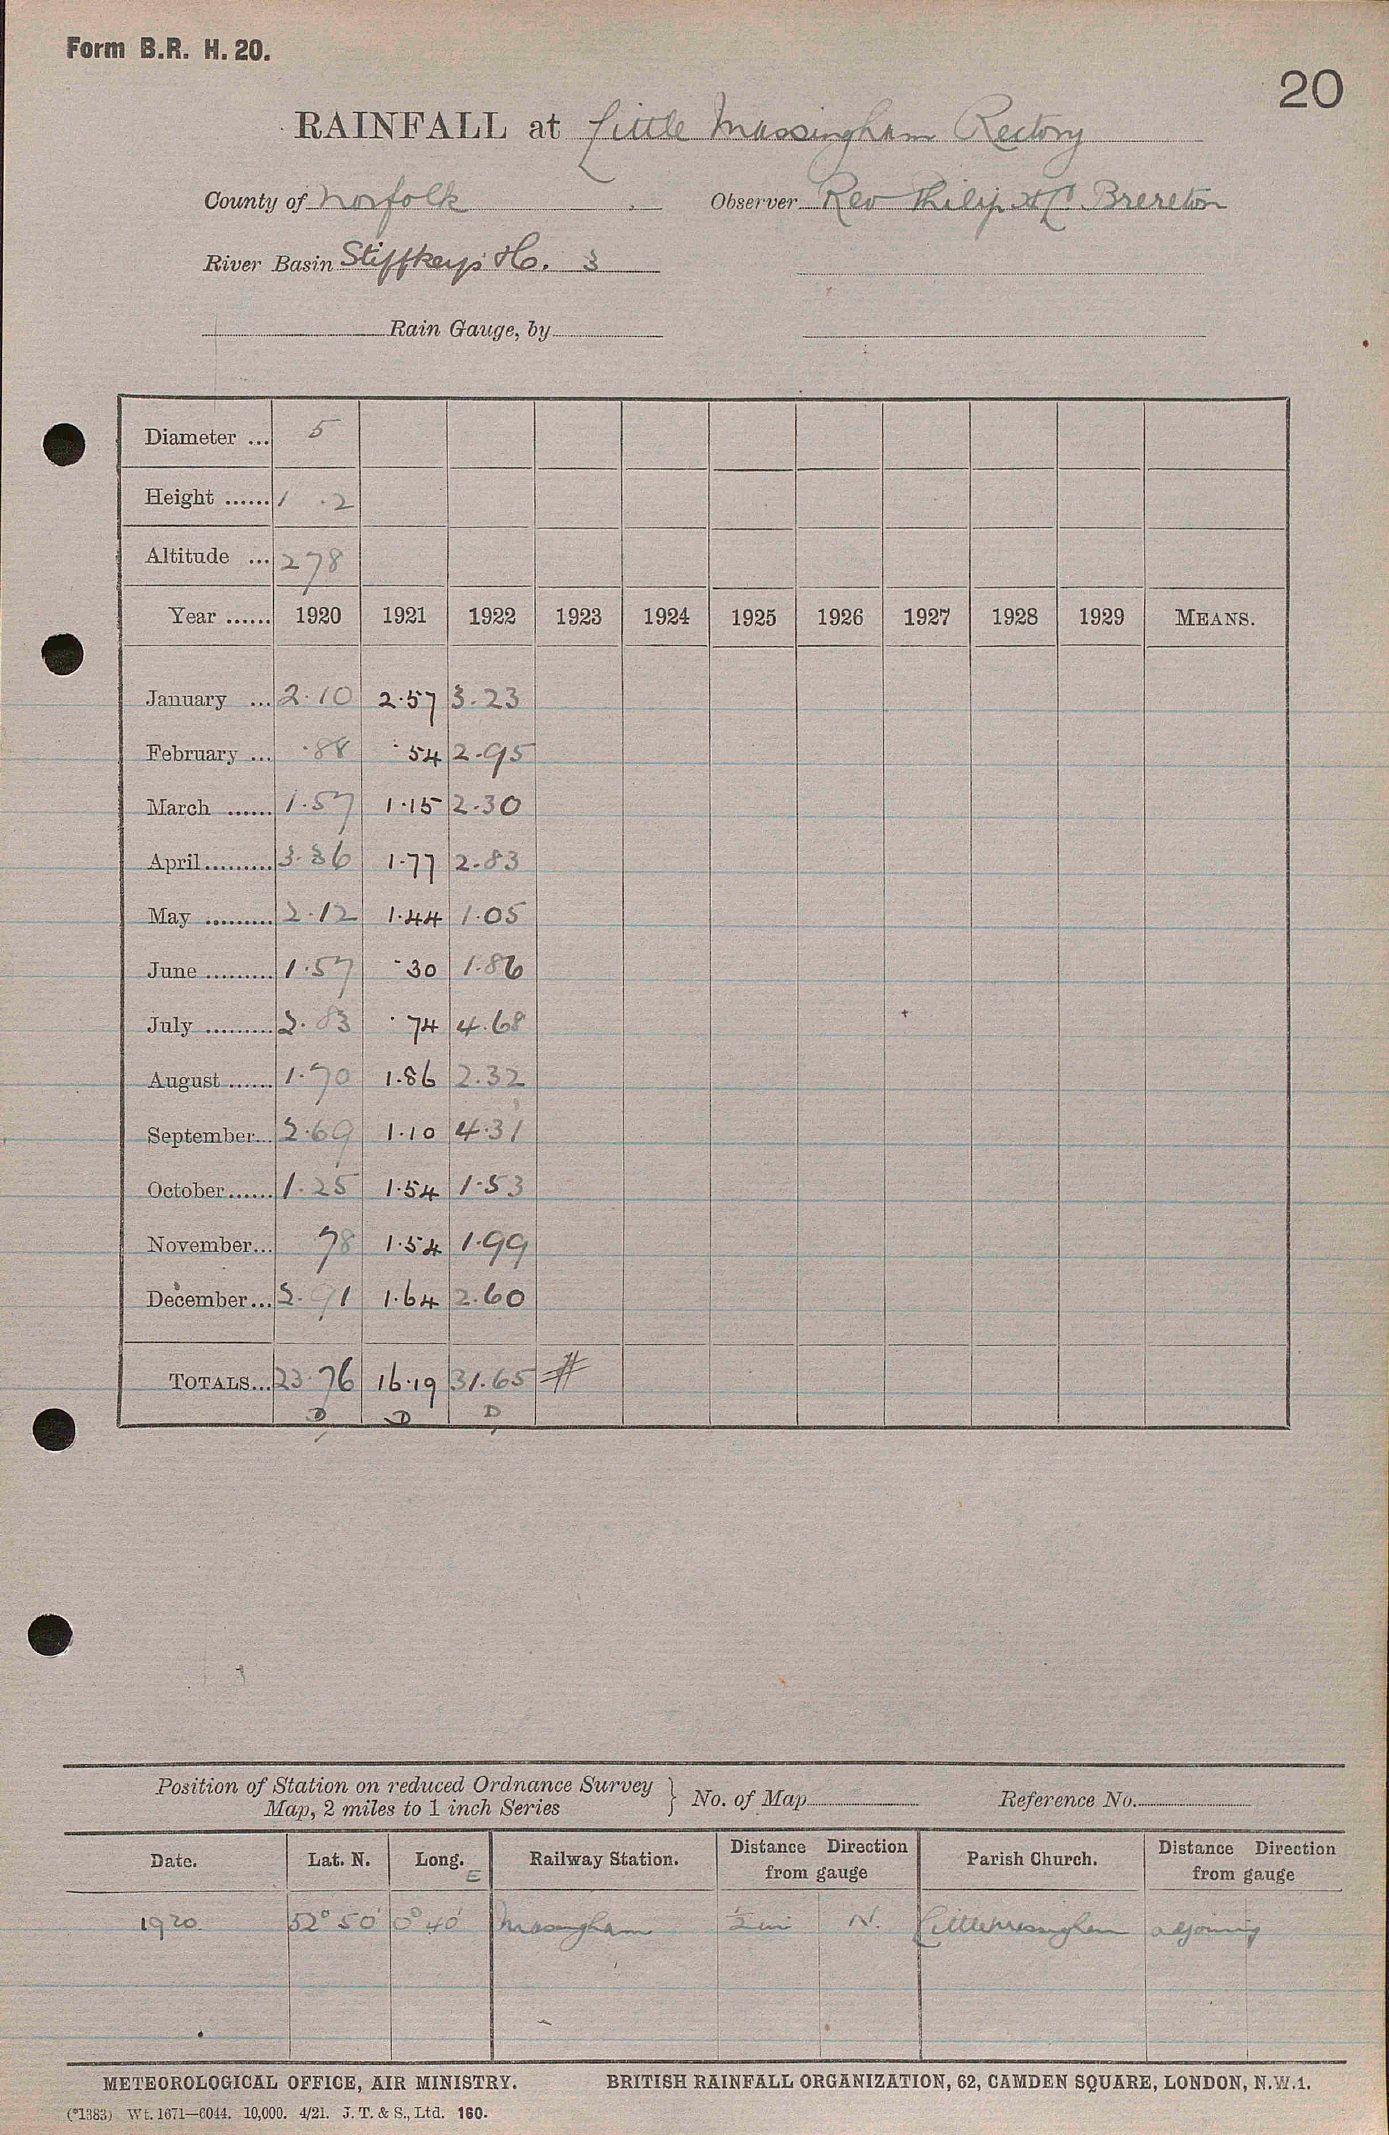 Form B.R. H. 20.
20
RAINFALL at Little Massingham Rectory
County of Norfolk Observer Rev Philip A C. Brereton
River Basin Stiffkey &c. 3
Rain Gauge, by
Diameter ... 5
Height ...... 1 .2
Altitude ... 278
Year ...... 1920 1921 1922 1923 1924 1925 1926 1927 1928 1929 MEANS.
January ... 2.10 2.57 3.23
February ... .88 .54 2.95
March ...... 1.57 1.15 2.30
April ......... 3.36 1.77 2.83
May ......... 2.12 1.44 1.05
June ......... 1.57 .30 1.86
July ......... 2.83 .74 4.68
August ...... 1.70 1.86 2.32
September... 2.69 1.10 4.31
October ...... 1.25 1.54 1.53
November... 78 1.54 1.99
December... 2.91 1.64 2.60
TOTALS... 23.76 16.19 31.65 #
D D D
Position of Station on reduced Ordnance Survey
Map, 2 miles to 1 inch Series } No. of Map Reference No.
Date. Lat. N. Long. E Railway Station. Distance Direction from gauge Parish Church. Distance Direction from gauge
1920. 52° 50' 0° 40' Massingham ½ mi N. Little Massingham adjoining
METEOROLOGICAL OFFICE, AIR MINISTRY. BRITISH RAINFALL ORGANIZATION, 62, CAMDEN SQUARE, LONDON, N.W.1.
(*1383) Wt. 1671—6044. 10,000. 4/21. J. T. & S., Ltd. 160.